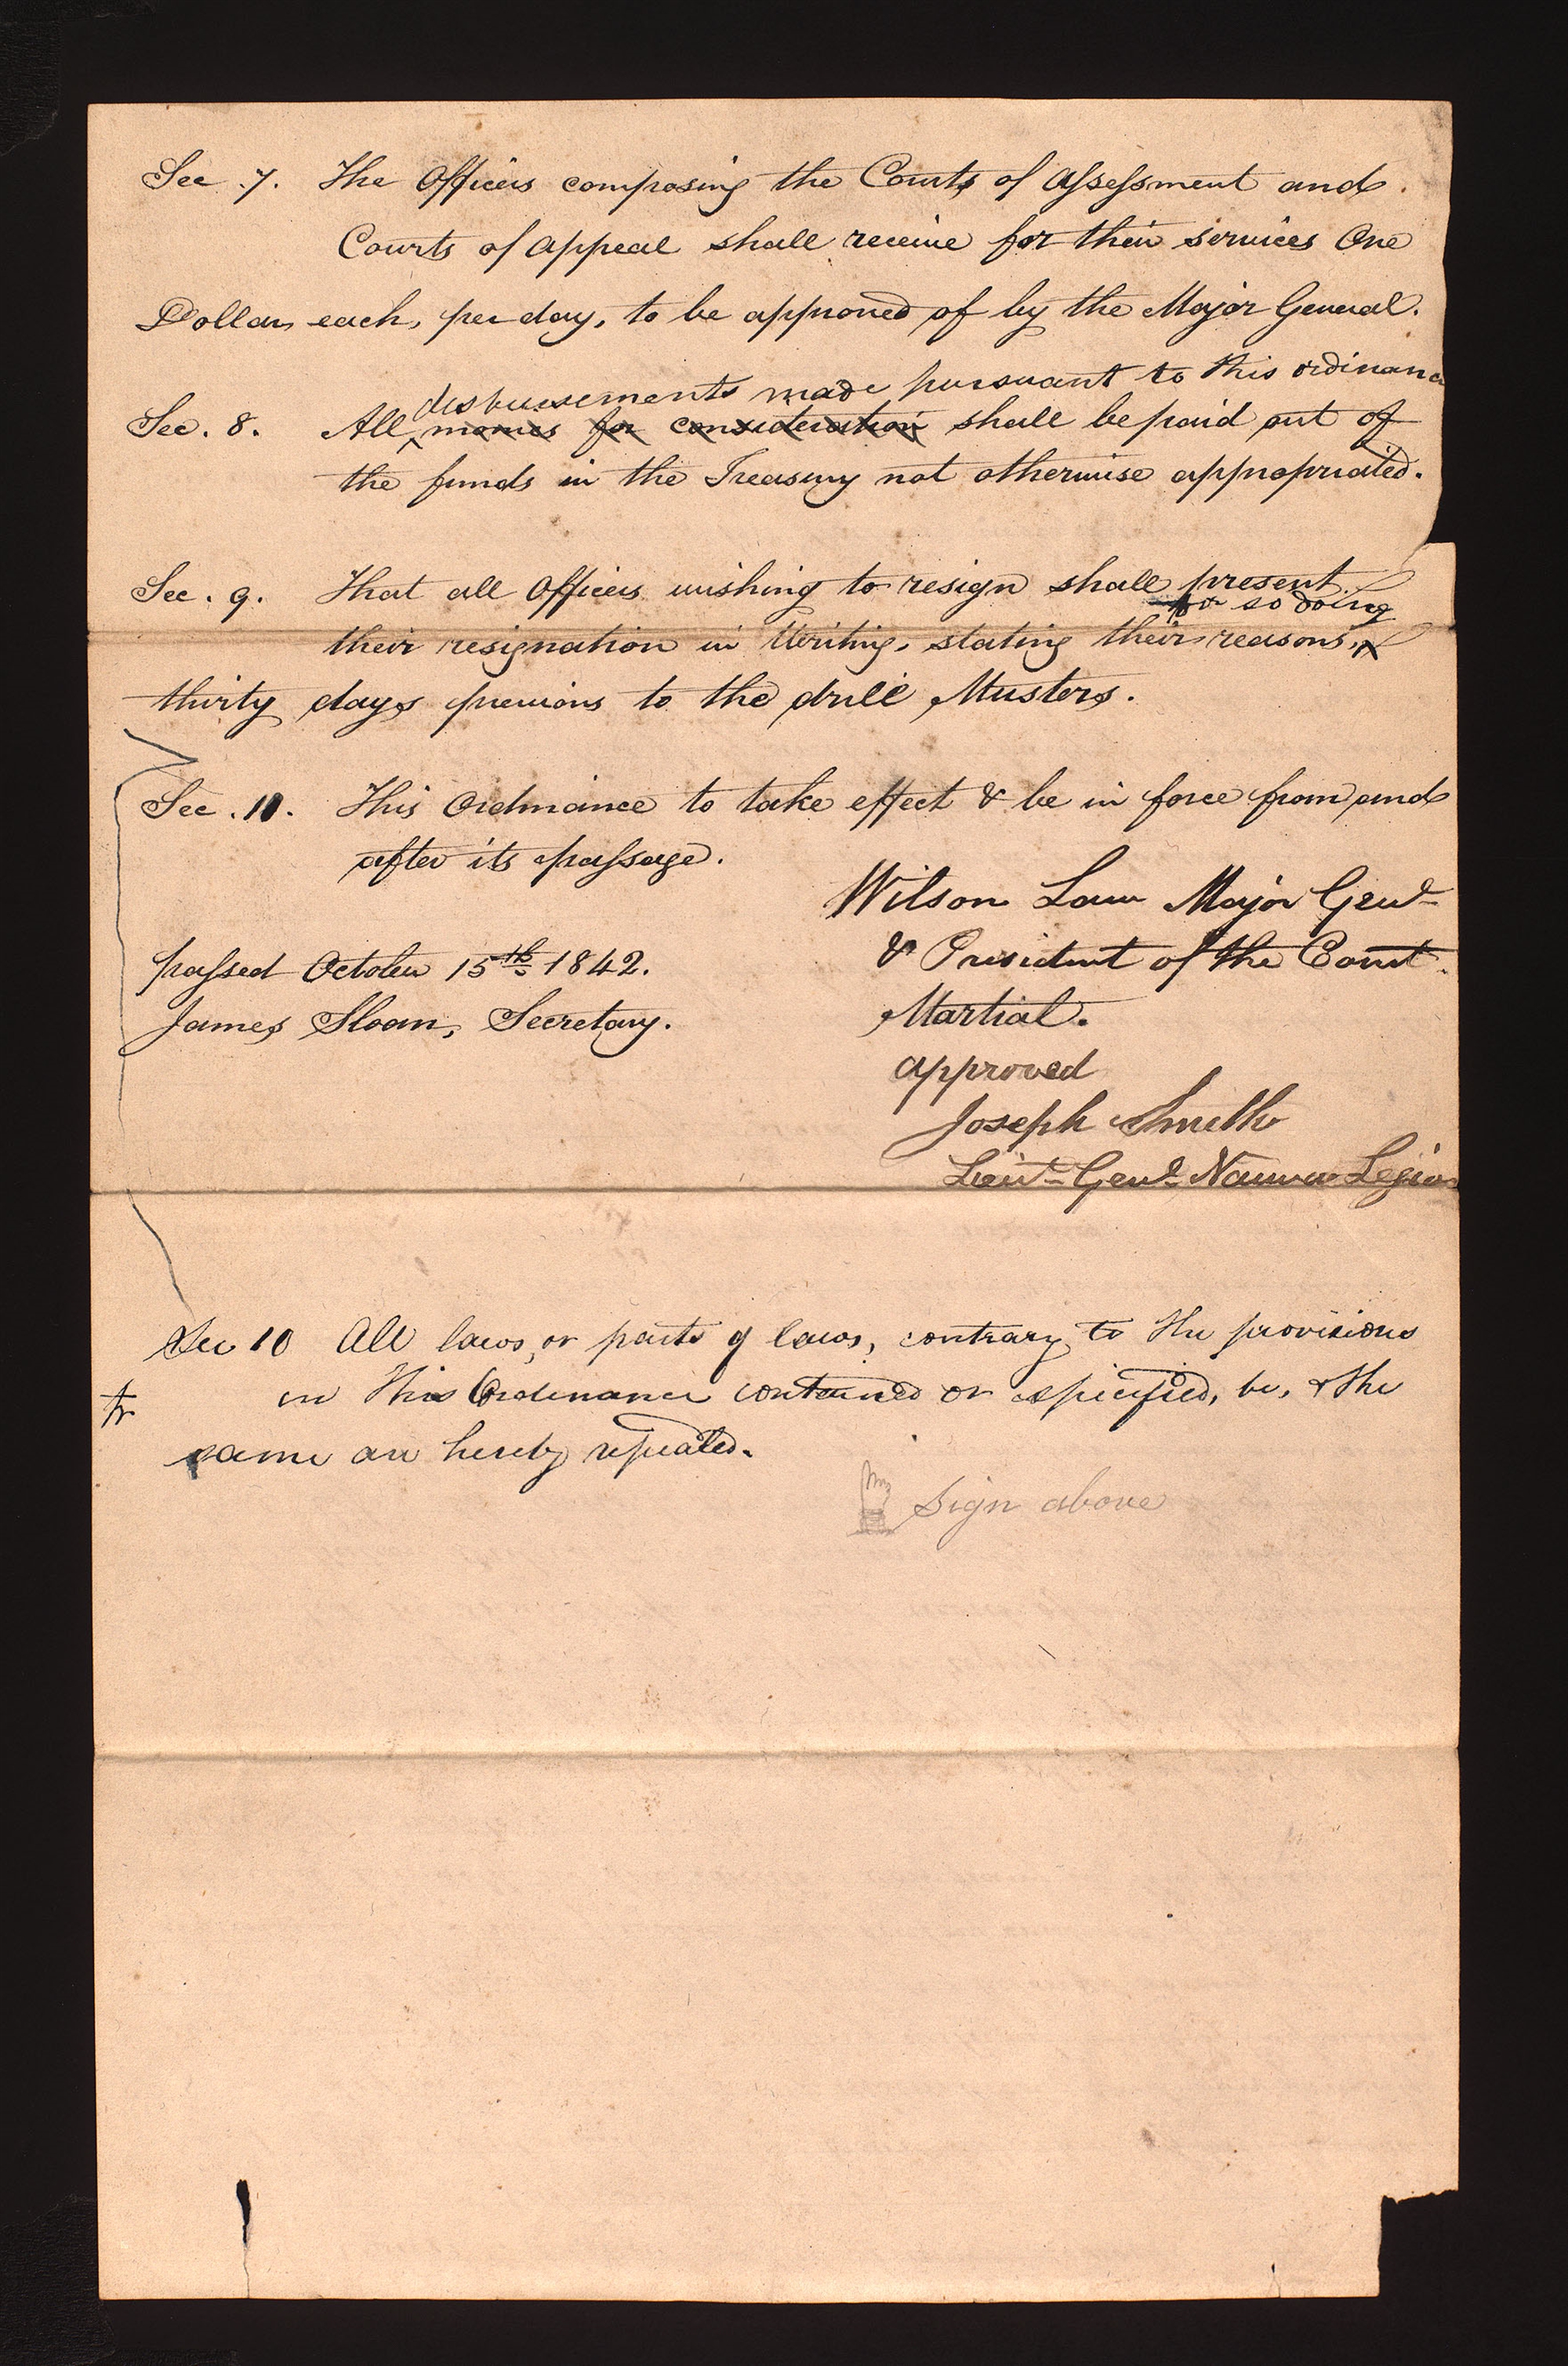 Sec. 7. The Officers composing the Courts of Assessment and
Courts of Appeal shall receive for their services One
Dollar, each, per day, to be approved of by the Major General.
disbursements made pursuant to this ordinance
Sec. 8. All ^ monies for consideration shall be paid out of
the funds in the Treasury not otherwise appropriated.
Sec. 9. That all Officers wishing to resign shall present
for so doing
their resignation in Writing, stating their reasons, ^
thirty days previous to the drill Musters.
Sec. 11. This Ordinance to take effect & be in force from and
after its passage.
Wilson Law Major Genl
& President of the Court
Martial.
passed October 15th 1842.
James Sloan, Secretary.
approved
Joseph Smith
Lieut Genl Nauvoo Legion
Sec 10 All laws, or parts of laws, contrary to the provisions
tr in this Ordinance contained or specified, be, & the
same are hereby repealed.
Sign above